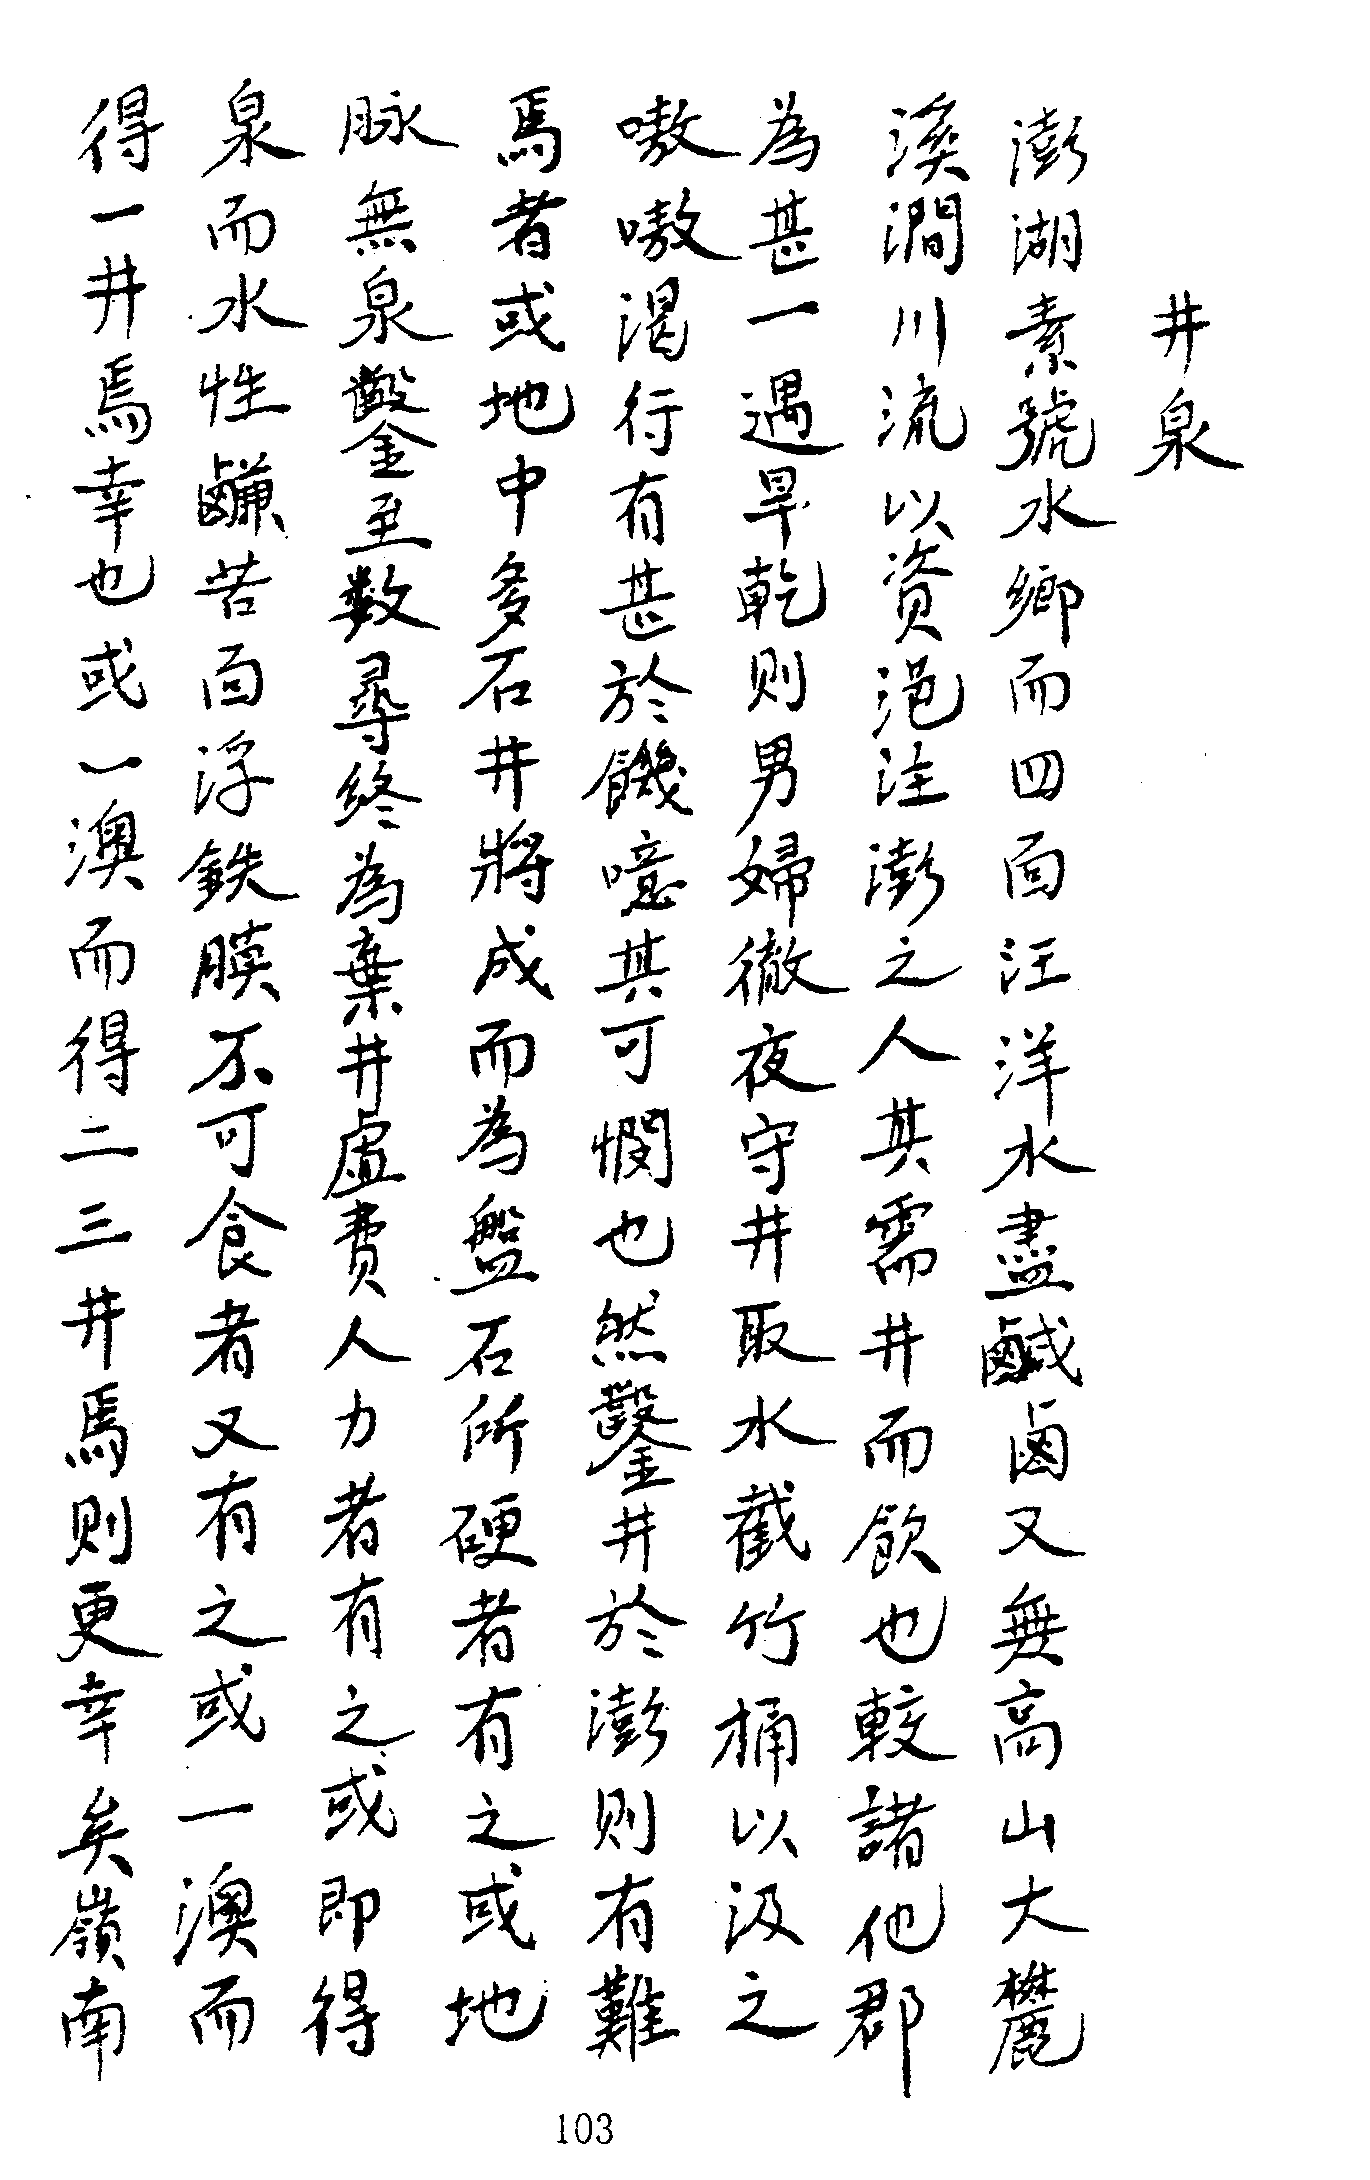 井泉
澎湖素號水鄉而四面汪洋水盡鹹鹵又無高山大麓
溪澗川流以資浥注澎之人其需井而飲也較諸他郡
為甚一遇旱乾則男婦徹夜守井取水截竹桶以汲之
嗷嗷渴行有甚於饑噫其可憫也然鑿井於澎則有難
焉者或地中多石井將成而為盤石所硬者有之或地
脉無泉鑿至数尋終為棄井虛費人力者有之或即得
泉而水性鹻苦面浮鉄膜不可食者又有之或一澳而
得一井焉幸也或一澳而得二三井焉則更幸矣嶺南
103